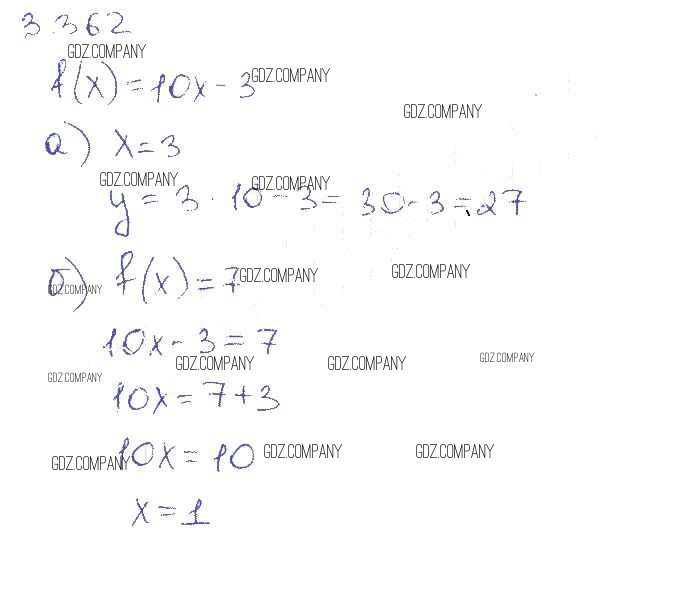 3.362
GDZ.COMPANY
f(x) = 10x - 3 GDZ.COMPANY
GDZ.COMPANY
а) x = 3
GDZ.COMPANY GDZ.COMPANY
y = 3 · 10 - 3 = 30 - 3 = 27
б) f(x) = 7 GDZ.COMPANY GDZ.COMPANY
GDZ.COMPANY
10x - 3 = 7
GDZ.COMPANY GDZ.COMPANY GDZ.COMPANY
GDZ.COMPANY
10x = 7 + 3
10x = 10 GDZ.COMPANY GDZ.COMPANY
GDZ.COMPANY
x = 1